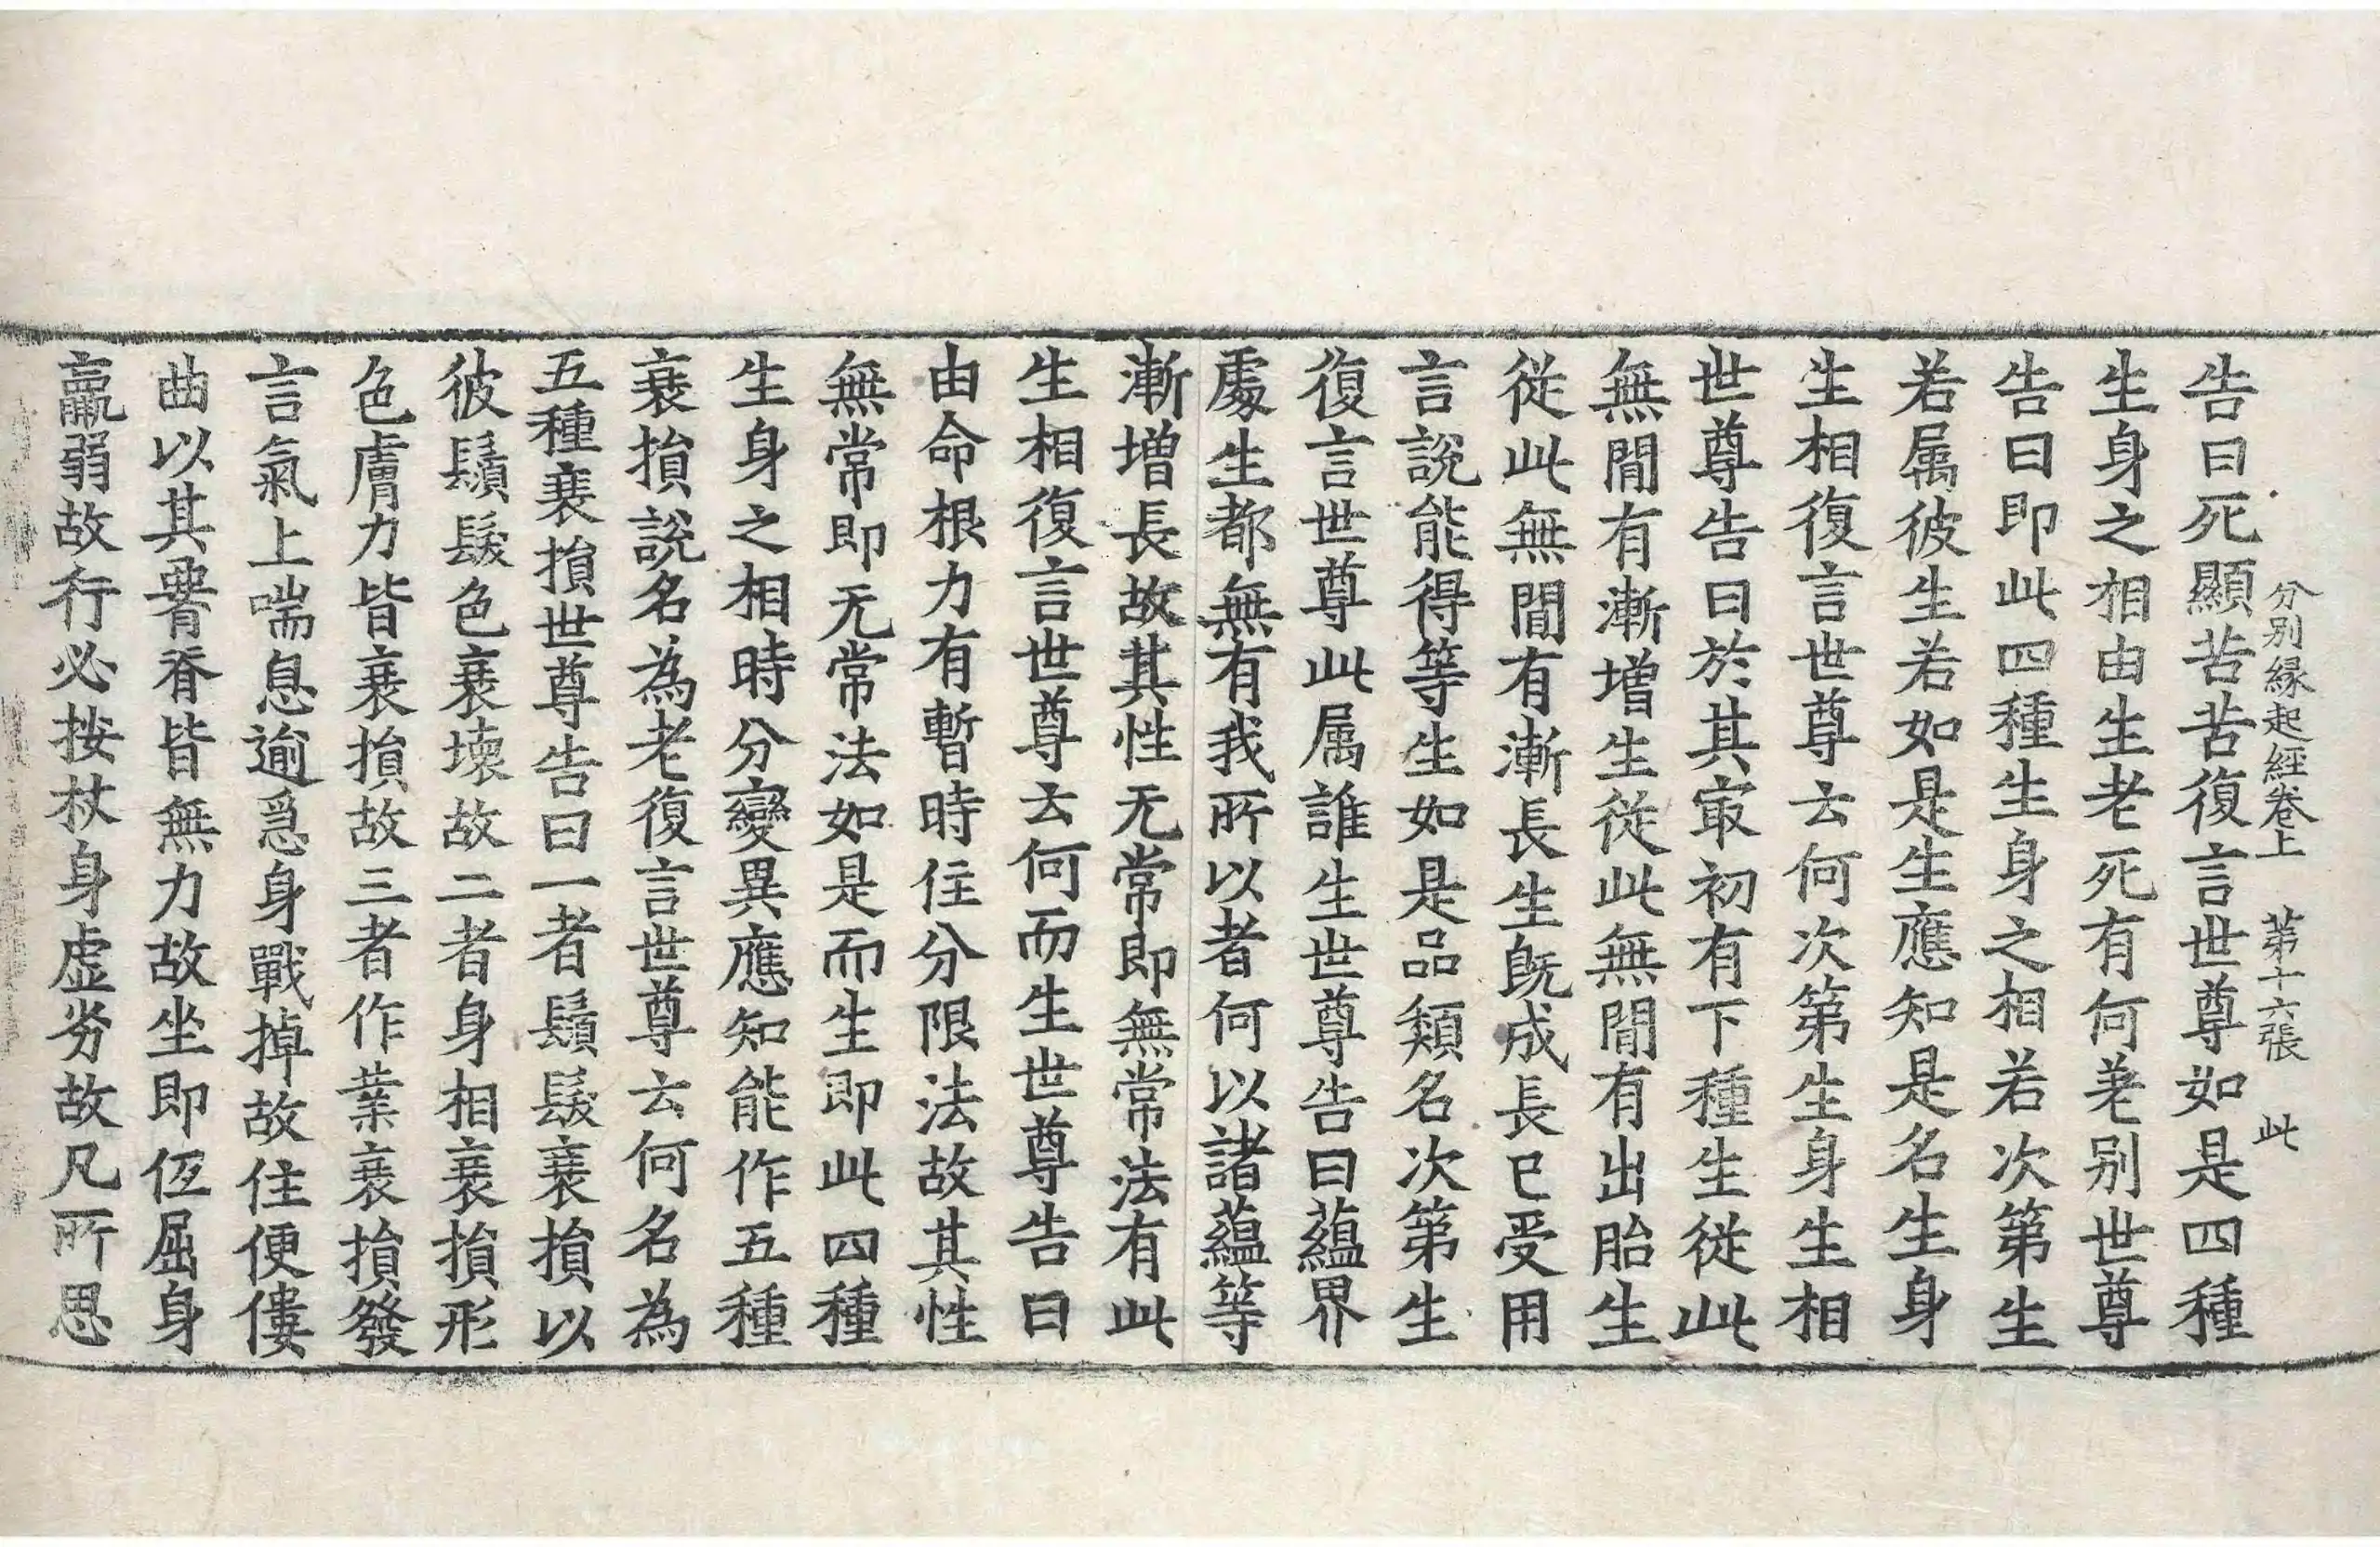 分别縁起經卷上　第十六張　此
告曰死顯苦苦復言世尊如是四種
生身之相由生老死有何差别世尊
告曰即此四種生身之相若次第生
若属彼生若如是生應知是名生身
生相復言世尊云何次第生身生相
世尊告曰於其㝡初有下種生従此
無間有漸增生従此無間有出胎生
従此無間有漸長生旣成長已受用
言說能得等生如是品類名次第生
復言世尊此属誰生世尊告曰蘊界
處生都無有我所以者何以諸蘊等
漸增長故其性无常即無常法有此
生相復言世尊云何而生世尊告曰
由命根力有暫時住分限法故其性
無常即无常法如是而生即此四種
生身之相時分變異應知能作五種
衰損說名為老復言世尊云何名為
五種衰損世尊告曰一者鬚髮衰損以
彼鬚髮色衰壞故二者身相衰損形
色膚力皆衰損故三者作業衰損發
言氣上喘息逾急身戰掉故住便僂
曲以其脊皆無力故坐即低屈身
羸弱故行必按杖身虛劣故凡所思